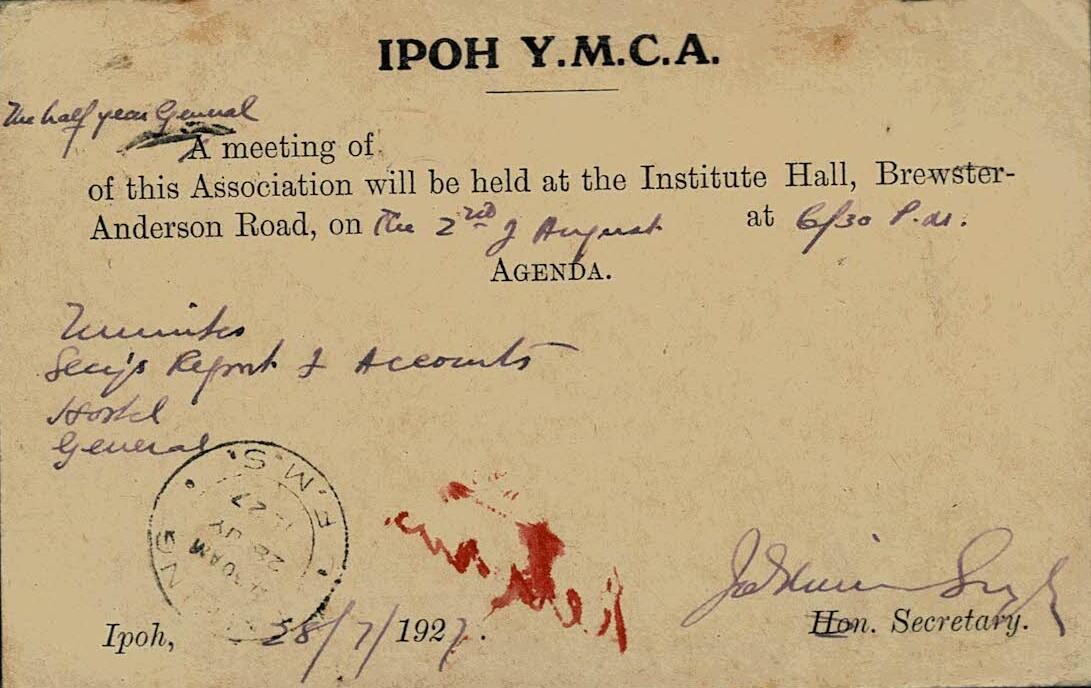 IPOH Y.M.C.A.
The half year General
A meeting of
of this Association will be held at the Institute Hall, Brewster-
Anderson Road, on The 2nd of August at 6/30 P.M.
AGENDA.
Minutes
Secy's Report & Accounts
Hostel
General
F.M.S.
28 JY
27
Ipoh, 28/7/1927.
Hon. Secretary.